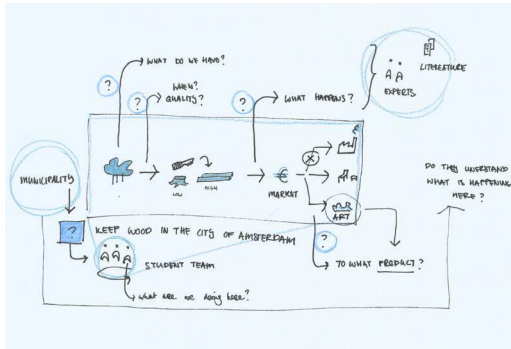 WHAT DO WE HAVE?
?
WHEN?
QUALITY?
?
?
WHAT HAPPENS?
EXPERTS
LITERATURE
MUNICIPALITY
LOW
HIGH
€
MARKET
ART
DO THEY UNERSTAND
WHAT IS HAPPENING
HERE?
?
KEEP WOOD IN THE CITY OF AMSTERDAM
STUDENT TEAM
?
TO WHAT PRODUCT?
What are we doing here?